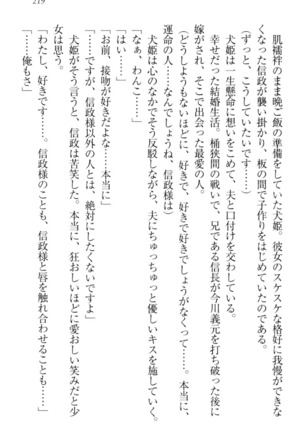 219
肌襦袢のまま晩ご飯の準備をしていた犬姫。彼女のスケスケな格好に我慢ができな
くなった信政が襲い掛かり、板の間で子作りをはじめていたのである。
(ずっと、こうしていたいです…)
犬姫は一生懸命に想いをこめて、夫と口付けを交わしている。
幸せだった結婚生活。桶狭間の戦いで、兄である信長が今川義元を打ち破った後に
嫁がされ、そこで出会った最愛の人。
(どうしようもないほどに、好きで、好きで好きでしょうがなくって……。本当に、
運命の人……なんでしょうね、信政様は)
「なぁ、わんこ……」
犬姫は心のなかでそう反駁しながら、夫にちゅっちゅっと優しいキスを施していく。
「お前、接吻が好きだな。本当に」
「……ですが、信政様以外の人とは、絶対にしたくないですよ」
犬姫がそう言うと、信政は苦笑した。本当に、狂おしいほどに愛おしい笑みだと少
女は思う。
「わたし、好きです……。信政様のことも、信政様と唇を触れ合わせることも……」
「……俺もさ」